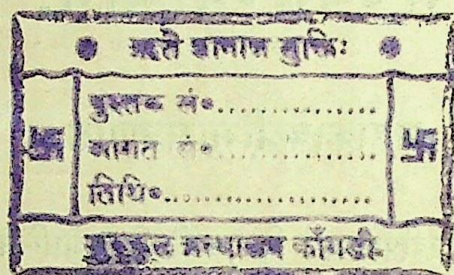 ऋते ज्ञानान्न मुक्तिः
पुस्तक सं०..................
आगत सं०..................
तिथि०..................
गुरुकुल ग्रन्थालय काँगड़ी.